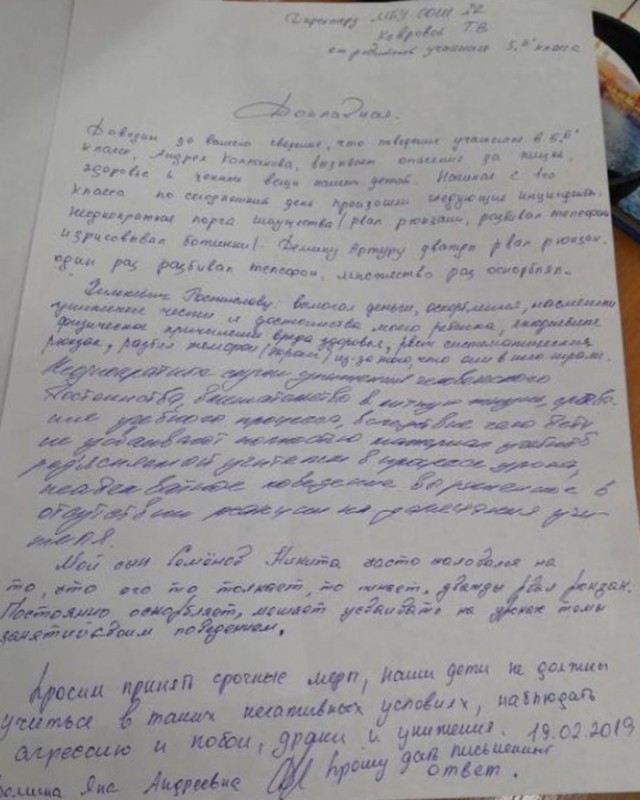 Директору МБУ СОШ 22
Ковровой Т.В
от родителей учащихся 5 "Б" класса
Докладная.
Доводим до вашего сведения, что поведение учащегося в 5 "Б"
классе, Андрея Колпакова, вызывает опасение за жизнь,
здоровье и ценные вещи наших детей. Начиная с 1го
класса по сегодняшний день произошли следующие инциденты:
Неоднократная порча имущества (рвал рюкзаки, разбивал телефоны
изрисовывал ботинки). Артуру дважды рвал рюкзак,
один раз разбивал телефон, множество раз оскорблял.
Ростиславу: вымогал деньги, оскорбления, насмешки
унижение чести и достоинства моего ребёнка, ежедневное
физическое причинение вреда здоровью, рвёт систематически
рюкзак, разбил телефон из-за того, что они в него играли.
Неоднократные случаи унижения человеческого
достоинства, вмешательство в личную жизнь,
учебного процесса, вследствие чего дети
не усваивают полностью материал
учителем в процессе урока,
неадекватное поведение выраженное в
отсутствии реакции на замечания учи-
теля.
Мой сын Семёнов Никита часто жаловался на
то, что его то толкает, то пинает. дважды рвал рюкзак.
Постоянно оскорбляет, мешает усваивать на уроках темы
занятий своим поведением.
Просим принять срочные меры, наши дети не должны
учиться в таких негативных условиях, наблюдать
агрессию и побои, драки и унижения. 19.02.2019
Яна Андреевна Прошу дать письменный
ответ.